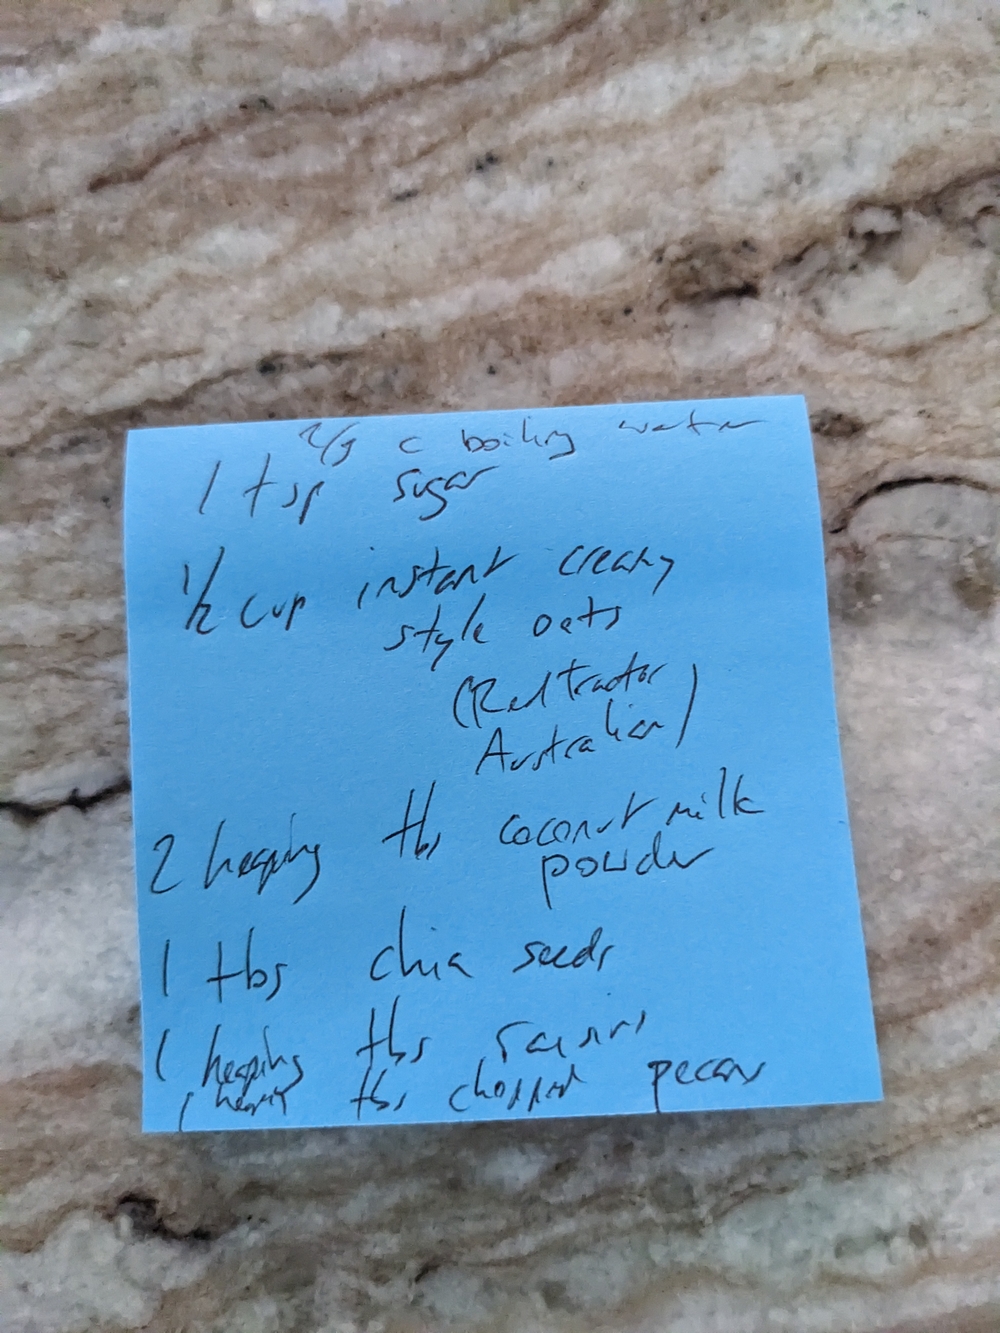 2/3 c boiling water
1 tsp sugar
1/2 cup instant creamy
style oats
(Red tractor
Australian)
2 heaping tbs coconut milk
powder
1 tbs chia seeds
1 heaping tbs raisins
1 heaping tbs chopped pecans